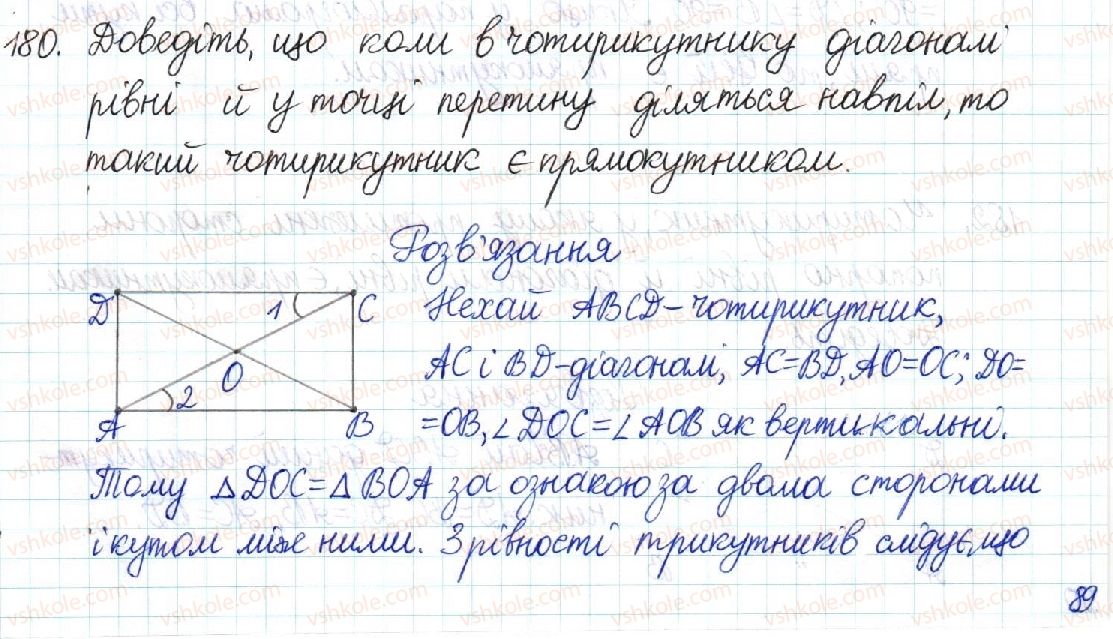 180. Доведіть, що коли в чотирикутнику діагоналі
рівні й у точці перетину діляться навпіл, то
такий чотирикутник є прямокутником.
Розв'язання
D 1 C
O
2
A B
Нехай ABCD-чотирикутник,
AC і BD-діагоналі, AC=BD, AO=OC; DO=
=OB, ∠DOC=∠AOB як вертикальні.
Тому △DOC=△BOA за ознакою за двома сторонами
і кутом між ними. З рівності трикутників слідує, що
89